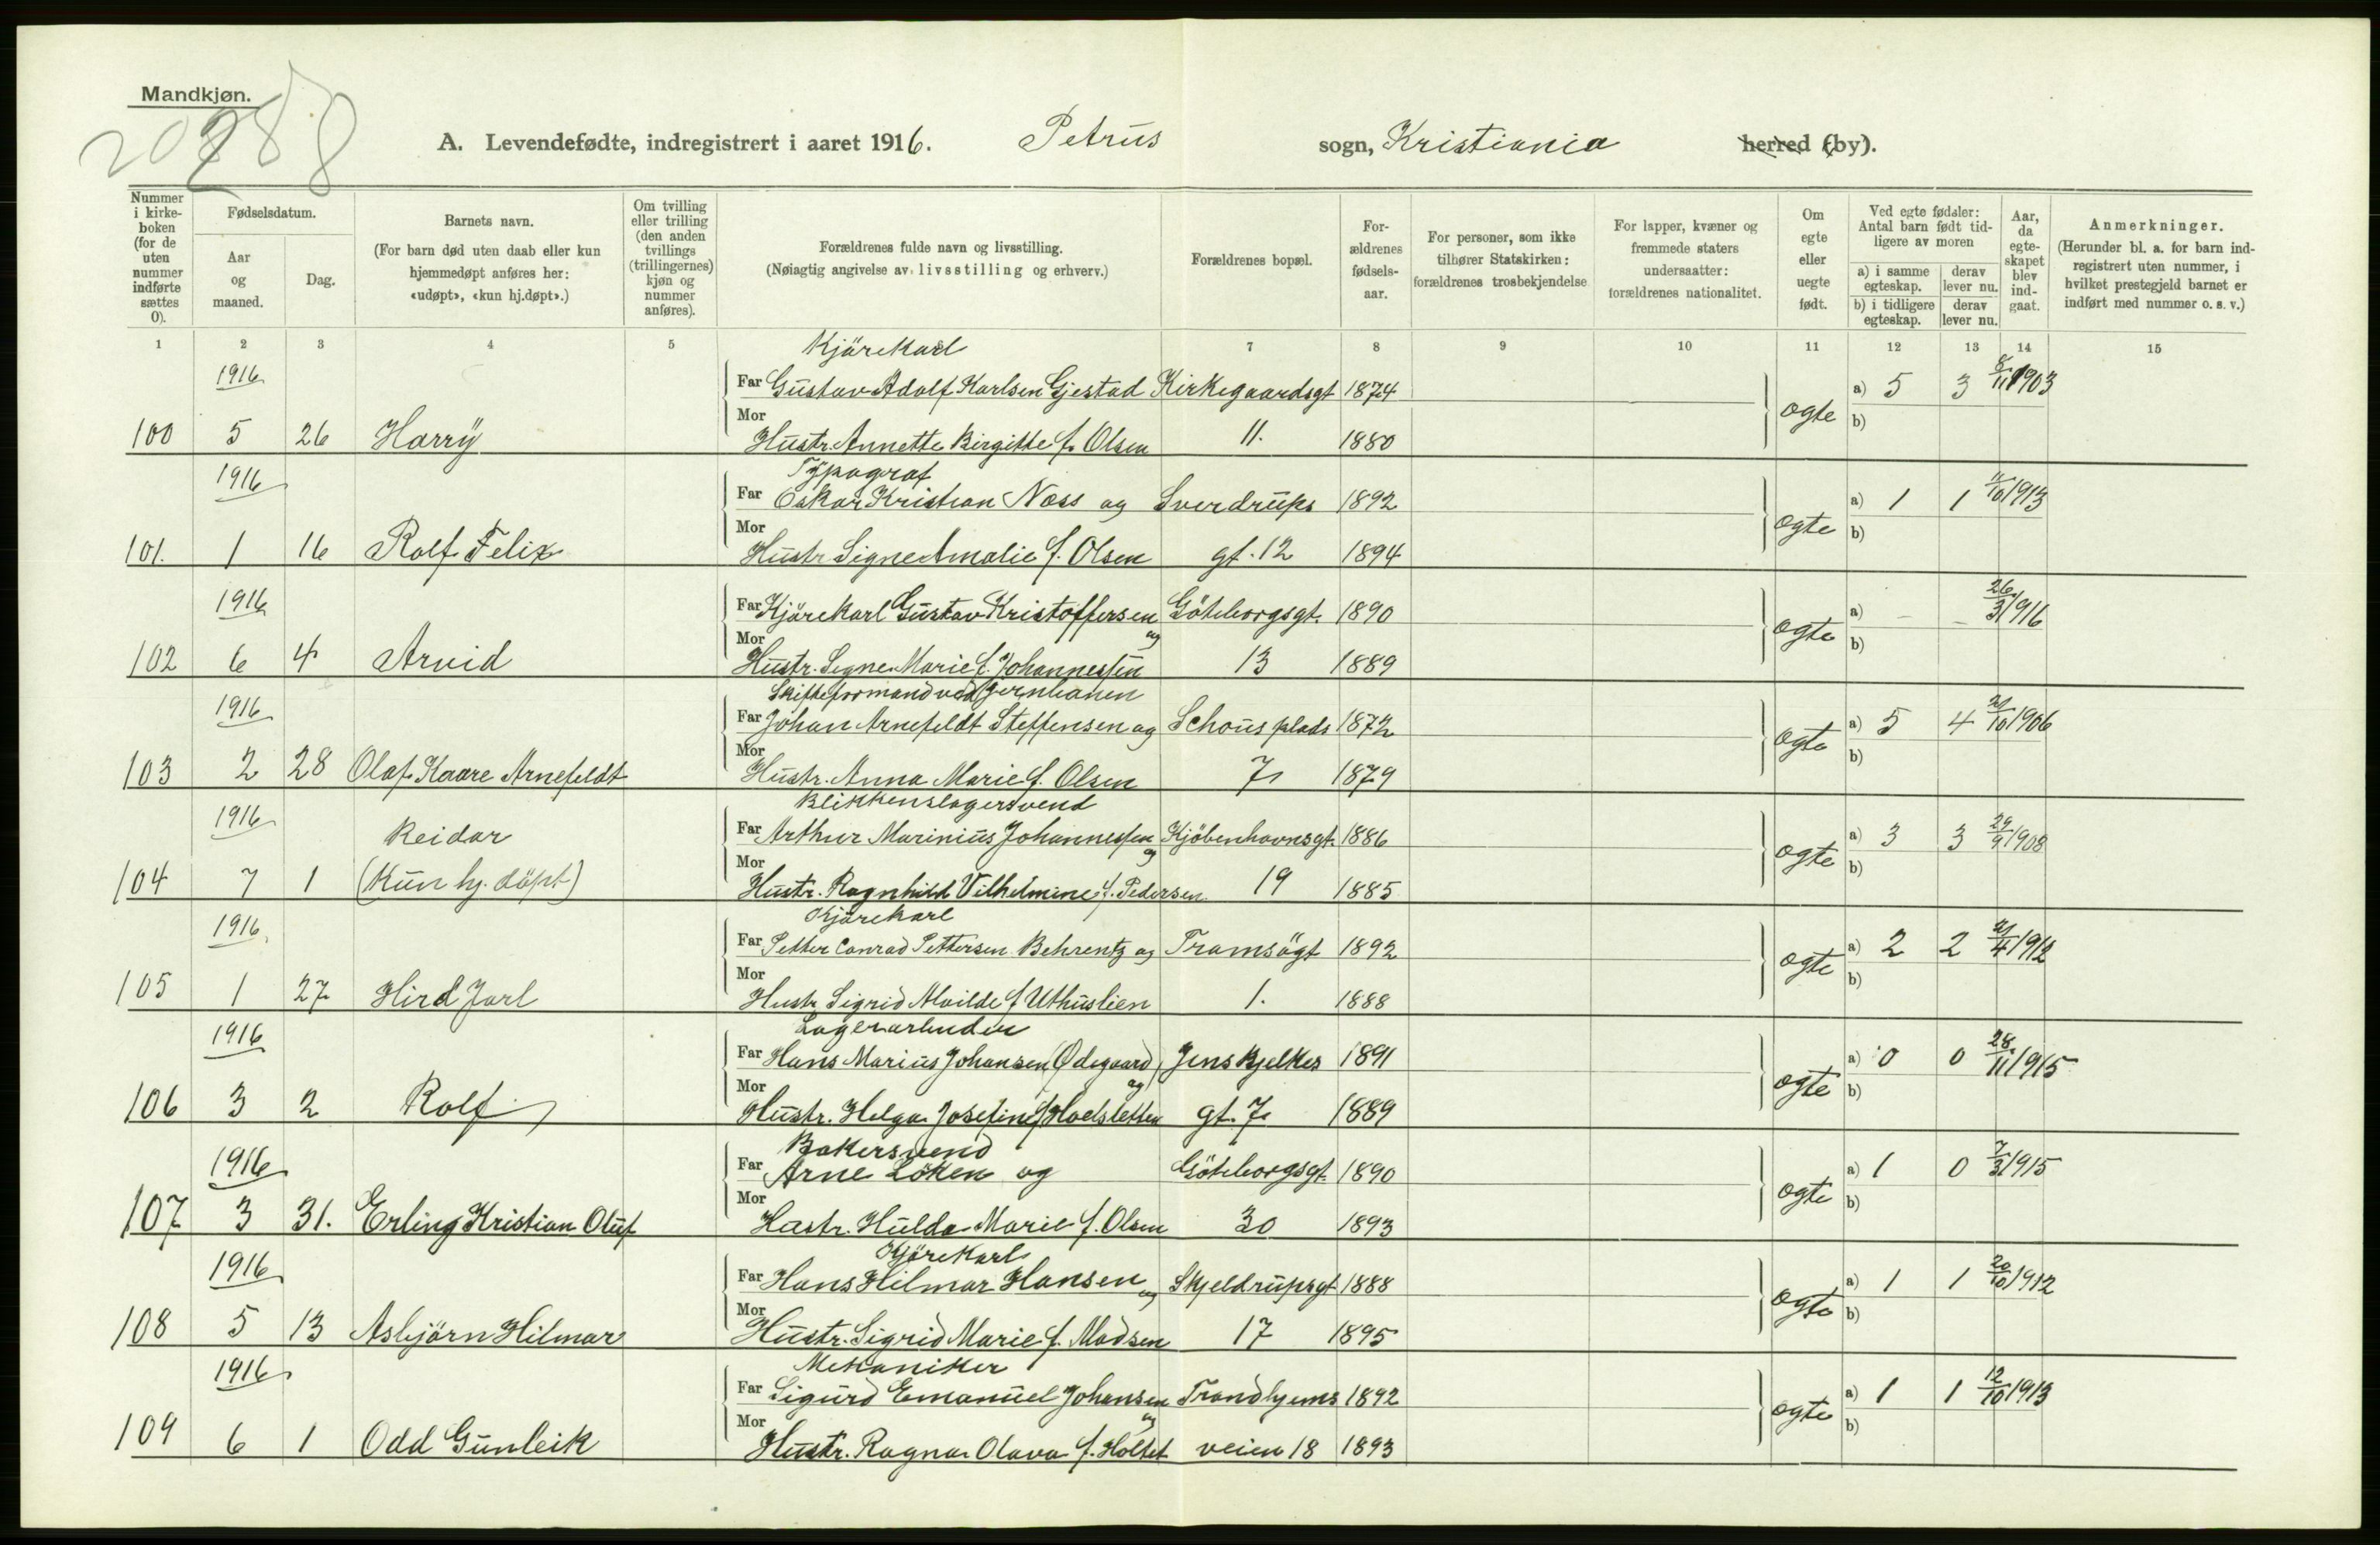 Mandkjøn.
A. Levendefødte, indregistrert i aaret 1916. Petrus sogn, Kristiania herred (by).
Nummer i kirkeboken (for de uten nummer indførte sættes 0).
Fødselsdatum.
Aar og maaned.
Dag.
Barnets navn.
(For barn død uten daab eller kun hjemmedøpt anføres her: «udøpt», «kun hj.døpt».)
Om tvilling eller trilling (den anden tvillings (trillingernes) kjøn og nummer anføres).
Forældrenes fulde navn og livsstilling.
(Nøiagtig angivelse av livsstilling og erhverv.)
Forældrenes bopæl.
Forældrenes fødselsaar.
For personer, som ikke tilhører Statskirken: forældrenes trosbekjendelse
For lapper, kvæner og fremmede staters undersaatter: forældrenes nationalitet.
Om egte eller uegte født.
Ved egte fødsler: Antal barn født tidligere av moren
a) i samme egteskap.
derav lever nu.
b) i tidligere egteskap.
derav lever nu.
Aar, da egteskapet blev indgaat.
Anmerkninger.
(Herunder bl. a. for barn indregistrert uten nummer, i hvilket prestegjeld barnet er indført med nummer o. s. v.)
1 2 3 4 5 7 8 9 10 11 12 13 14 15
Kjörekarl
1916 Far Gustav Adolf Karlsen Gjestad Kirkegaardsgt 1874 a) 5 3 8/11 1903
100 5 26 Harry Mor Hustr. Annette Birgitte f. Olsen 11. 1880 ogte b)
Typograf
1916 Far Oskar Kristian Næss og Sverdrups 1892 a) 1 1 11/10 1913
101. 1 16 Rolf Felix Mor Hustr Signe Amalie f. Olsen gt. 12 1894 ogte b)
1916 Far Kjörekarl Gustav Kristoffersen og Göteborgsgt. 1890 a) - - 26/3 1916
102 6 4 Arvid Mor Hustr. Signe Marie f. Johannessen 13 1889 ogte b)
Skifteformand ved Jernbanen
1916 Far Johan Arnefeldt Steffensen og Schous plads 1872 a) 5 4 /10 1906
103 2 28 Olaf Kaare Arnefeldt Mor Hustr. Anna Marie f. Olsen 7 1879 ogte b)
Blikkenslagersvend
1916 Reidar Far Arthur Marinius Johannessen og Kjöbenhavnsgt. 1886 a) 3 3 29/9 1908
104 7 1 (Kun hj. döpt) Mor Hustr. Ragnhild Vilhelmine f. Pedersen 19 1885 ogte b)
Kjörekarl
1916 Far Petter Conrad Pettersen Behrentz og Tromsögt 1892 a) 2 2 /4 1912
105 1 27 Hird Jarl Mor Hustr Sigrid Alvilde f Uthuslien 1. 1888 ogte b)
Lagerarbeider
1916 Far Hans Marius Johansen (Ödegaard) og Jens Bjelkes 1891 a) 0 0 28/11 1915
106 3 2 Rolf Mor Hustr. Helga Josefine f Hoelsletten gt. 7 1889 ogte b)
Bakersvend
1916 Far Arne Löken og Göteborgsgt. 1890 a) 1 0 7/3 1915
107 3 31. Erling Kristian Oluf Mor Hustr. Hulda Marie f. Olsen 30 1893 ogte b)
Kjörekarl
1916 Far Hans Hilmar Hansen og Skjeldrupsgt 1888 a) 1 1 20/10 1912
108 5 13 Asbjörn Hilmar Mor Hustr. Sigrid Marie f. Madsen 17 1895 ogte b)
Mekaniker
1916 Far Sigurd Emanuel Johansen og Trondhjems 1892 a) 1 1 12/10 1913
109 6 1 Odd Gunleik Mor Hustr. Ragna Olava f. Holtet veien 18 1893 ogte b)